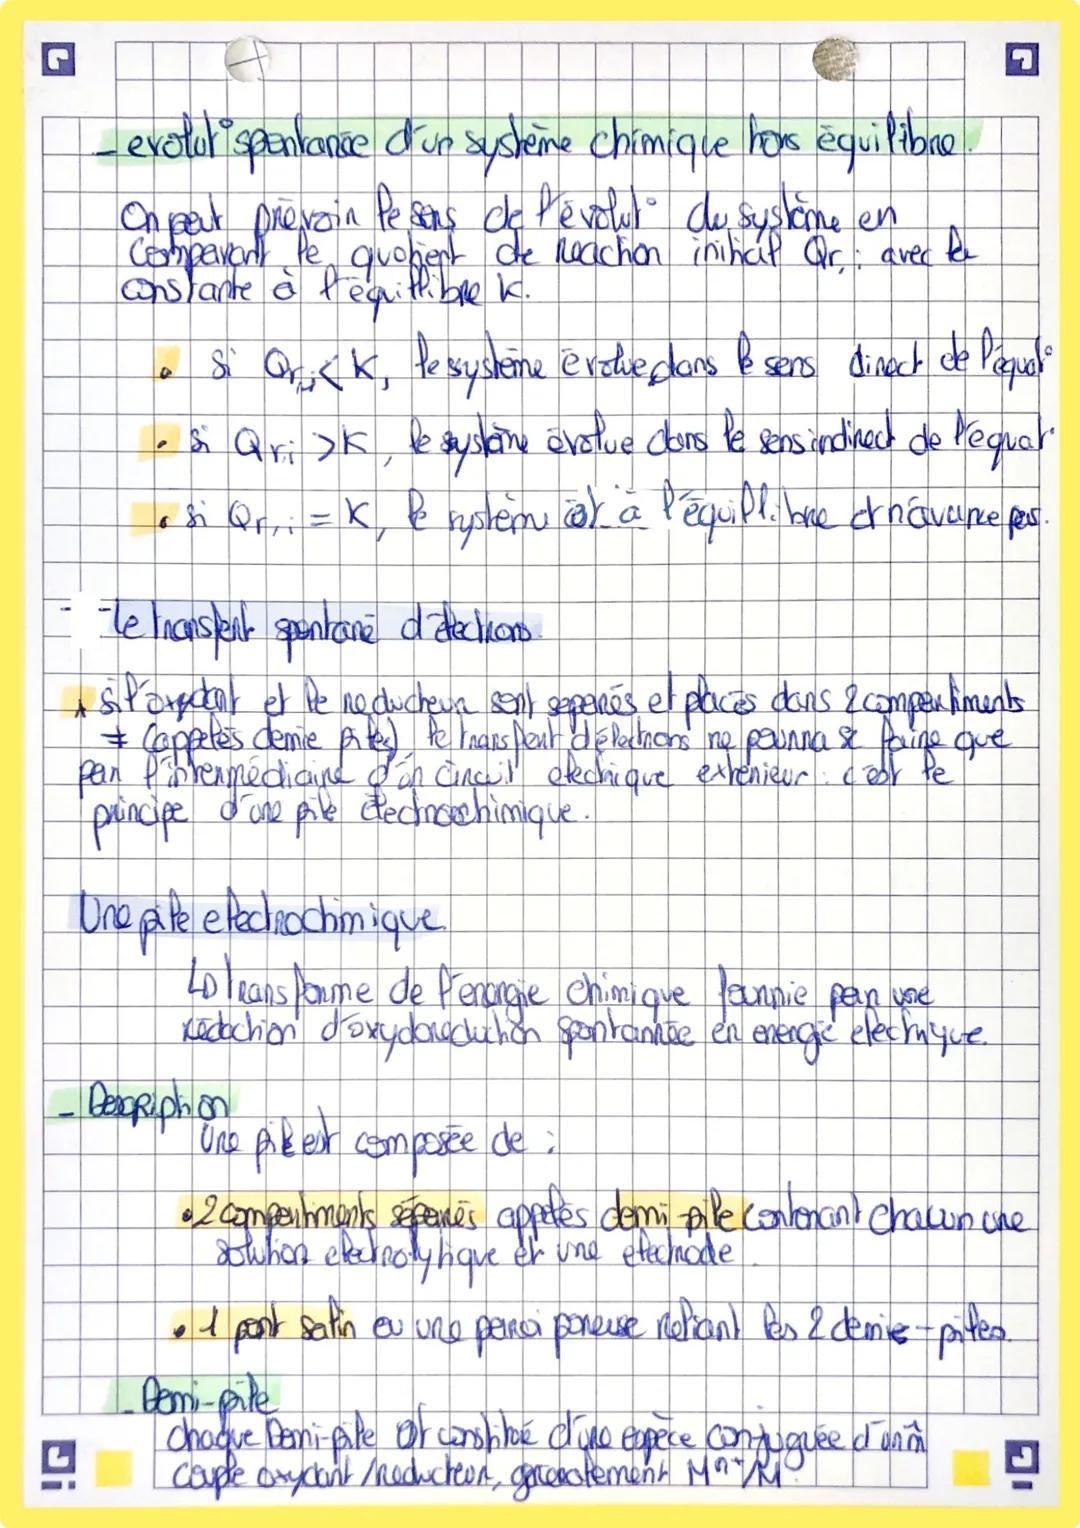 - evolut° spontanée d'un système chimique hors équilibre.
On peut prévoir le sens de l'évolut° du système en
comparant le quotient de reaction initial Qr,i avec la
constante à l'équillibre K.
• si Qr,i < K, le système évolue dans le sens direct de l'équat°
• si Qr,i > K, le système évolue dans le sens indirect de l'équat°
• si Qr,i = K, le systèm est à l'équillibre et n'avance pas.
- le transfert spontané d'électrons
si l'oxydant et le reducteur sont séparés et placés dans 2 compartiments
≠ (appelés demie piles), le transfert d'électrons ne pourra se faire que
par l'intermédiaire d'un circuit electrique exterieur : c'est le
principe d'une pile électrochimique.
Une pile electrochimique
↳ transforme de l'énergie chimique fournie par une
réaction d'oxydoreduction spontannée en energie electrique.
- Description
Une pile est composée de :
• 2 compartiments séparés appelés demi-pile contenant chacun une
solution electrolytique et une electrode
• 1 pont salin ou une paroi poreuse reliant les 2 demies-piles.
- Demi-pile
chaque Demi-pile est constitué d'une espèce conjuguée d'un m̂
couple oxydant/reducteur, généralement Mⁿ⁺/M.